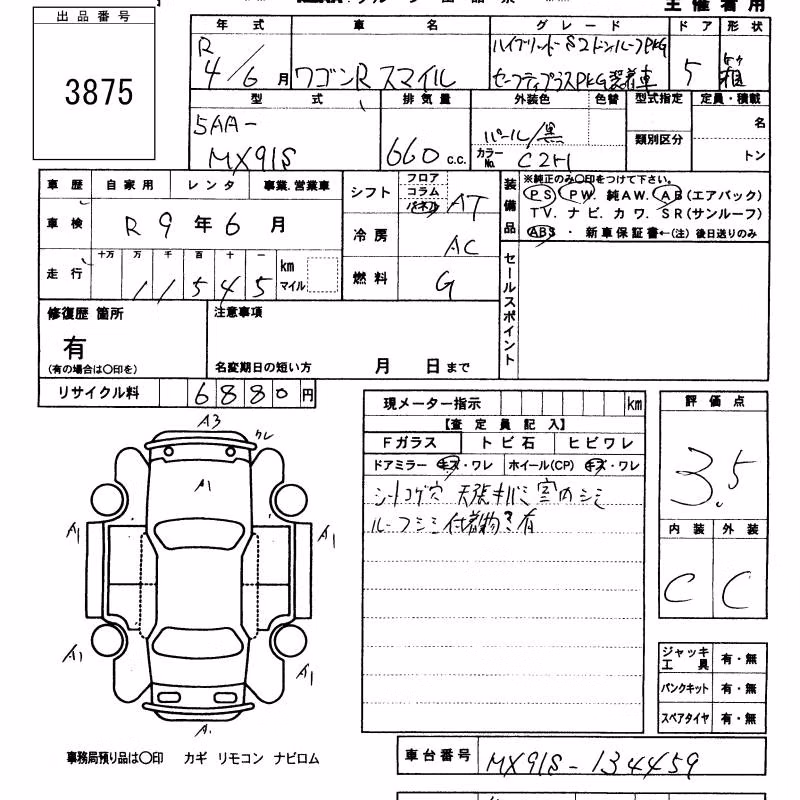 主催者用
出品番号
3875
年式 車名 グレード ドア 形状
R 4/6月 ワゴンR スマイル
ハイブリッドS2トンルーフPKG
セーフティプラスPKG装着車 5 箱
型式 排気量 外装色 色替 型式指定 定員・積載
5AA-
MX91S 660 c.c. パール/黒
カラーNo. C2H
類別区分 名
トン
車歴 自家用 レンタ 事業.営業車
車検 R 9年6月
走行 十万 万 千 百 十 一 km マイル
11545
シフト フロア コラム パネル AT
冷房 AC
燃料 G
装備品 ※純正のみ○印をつけて下さい。
PS PW. 純AW. AB(エアバック)
TV. ナビ. カワ. SR(サンルーフ)
ABS ・ 新車保証書←(注) 後日送りのみ
セールスポイント
修復歴 箇所
有
(有の場合は○印を)
注意事項
名変期日の短い方 月 日まで
リサイクル料 6880円
現メーター指示 km
【査定員記入】
Fガラス トビ石 ヒビワレ
ドアミラー キズ・ワレ ホイール(CP) キズ・ワレ
シートコゲ穴 天張キバミ 室内シミ
ルーフシミ付着物有
評価点
3.5
内装 外装
C C
A3
クレ
A1
A1 A1
A1 A1
A.
ジャッキ工具 有・無
パンクキット 有・無
スペアタイヤ 有・無
事務局預り品は○印 カギ リモコン ナビロム
車台番号 MX91S-134459